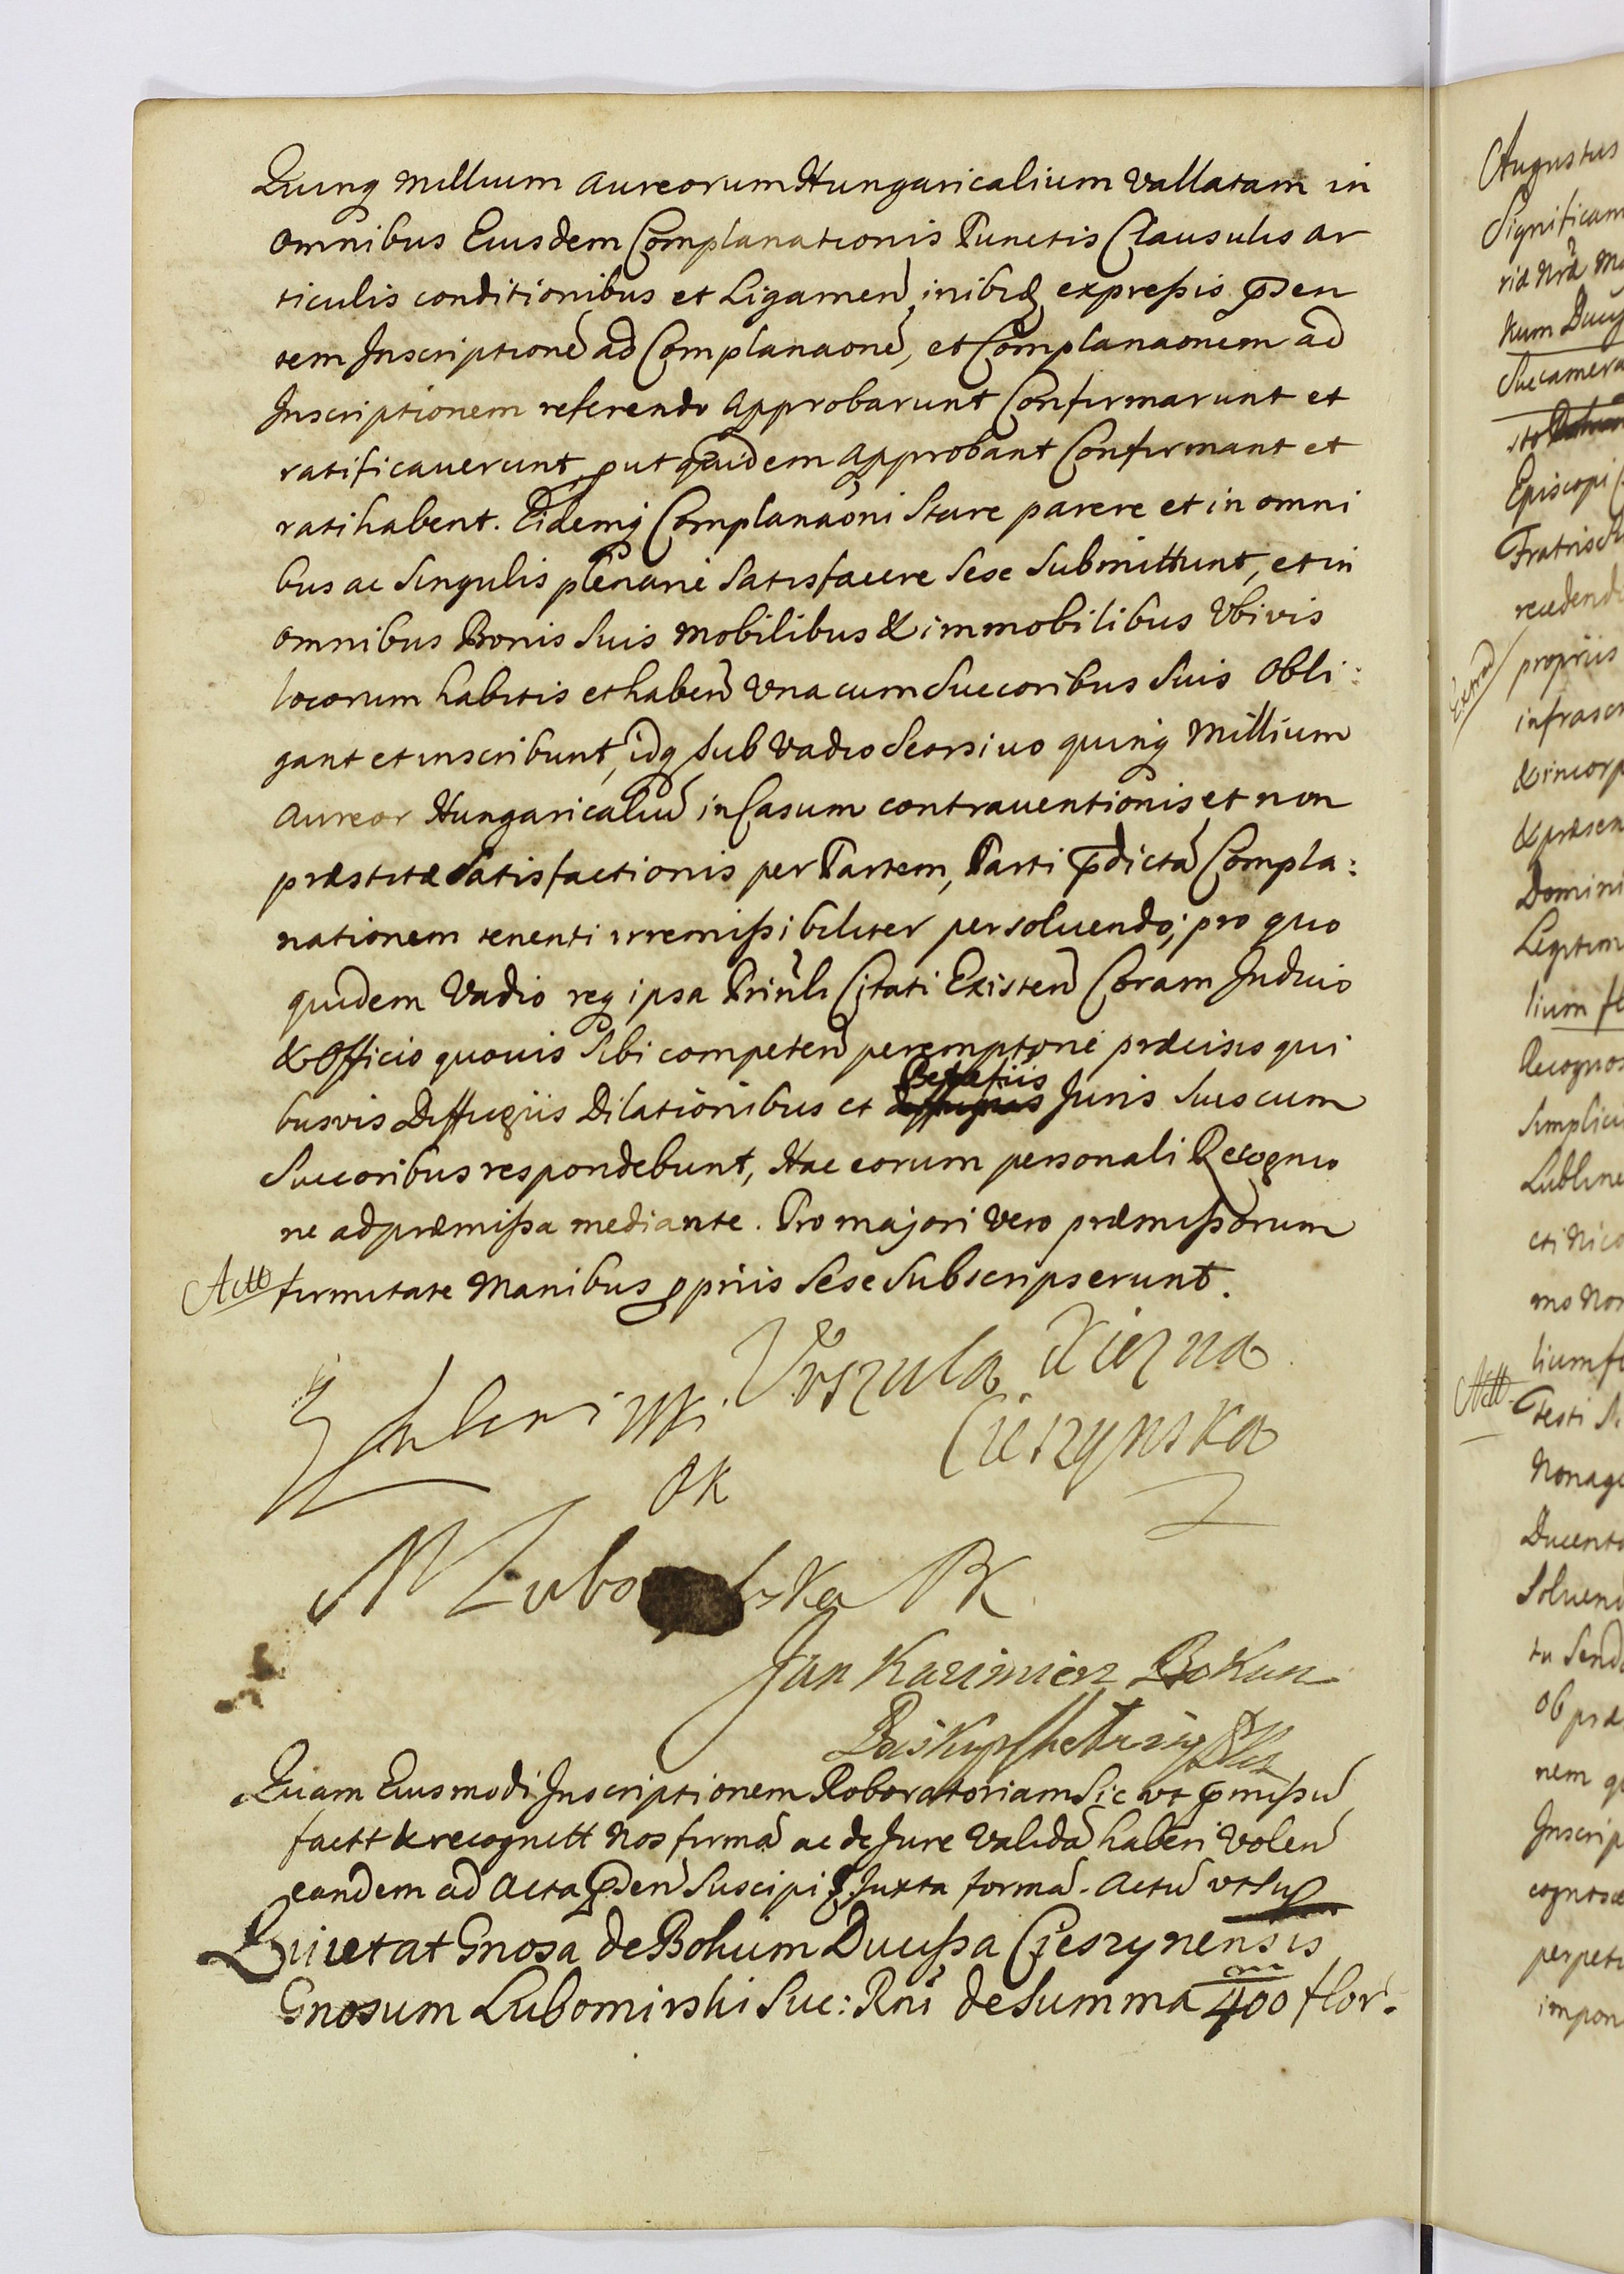 Quinq millium aureorum Hungaricalium Vallatam in
omnibus Eiusdem Complanationis Punctis Clausulis ar
ticulis conditionibus et Ligamen inibiq expressis pden
tem Inscriptione ad Complanaone, et Complanaonem ad
Inscriptionem referendo approbarunt Confirmarunt et
ratificauerunt, put quidem approbant Confirmant et
ratihabent. Eidemq Complanaoni Stare parere et in omni
bus ac Singulis plenarie Satisfacere Sese Submittunt, et in
omnibus Bonis Suis mobilibus & immobilibus Vbivis
locorum habitis et haben Vna cum Succoribus Suis Obli:
gant et inscribunt, idq sub Vadio Seorsiuo quinq Millium
Aureor Hungaricaliu in Casum contrauentionis et non
præstitæ Satisfactionis per Partem, Parti pdicta Compla:
nationem tenenti irremissibiliter persoluendo; pro quo
quidem Vadio reg ipsa Prinli Citati Existen Coram Judicio
& Officio quouis Sibi competen peremptorie præcisis qui
busvis Diffugiis Dilationibus et Benefiis Juris Suis cum
Succoribus respondebunt, Hac eorum personali Recognio
ne ad præmissa mediante. Pro majori Vero præmissorum
Actt firmitate Manibus ppriis Sese Subscripserunt.
Vrszula Xiezna
Cieszynska
PK
M Lubo ska PK
Jan Kazimierz Bokun
Biskup
Quam Eiusmodi Inscriptionem Roboratoriam Sic vt pmissu
factt & recognitt Nos firma ac de Jure Valida haberi Volen
eandem ad Acta pden Suscipi Juxta forma. Actu vt Sup
Quietat Gnosa de Bohum Ducissa Cieszynensis
Gnosum Lubomirski Suc: Rni de Summa 400 m flor.
Augustus
Significam
Kum
Succamera
Episcopi
Fratris
recedend
propriis
infrascr
& incorp
& præsen
Domini
Legitim
lium fl
Recognos
Simplici
Lubline
cti Nico
mo Non
lium fl
Actt
festi
Nonage
Ducento
Soluend
Ob præ
nem
Inscrip
cognos
perpet
impon